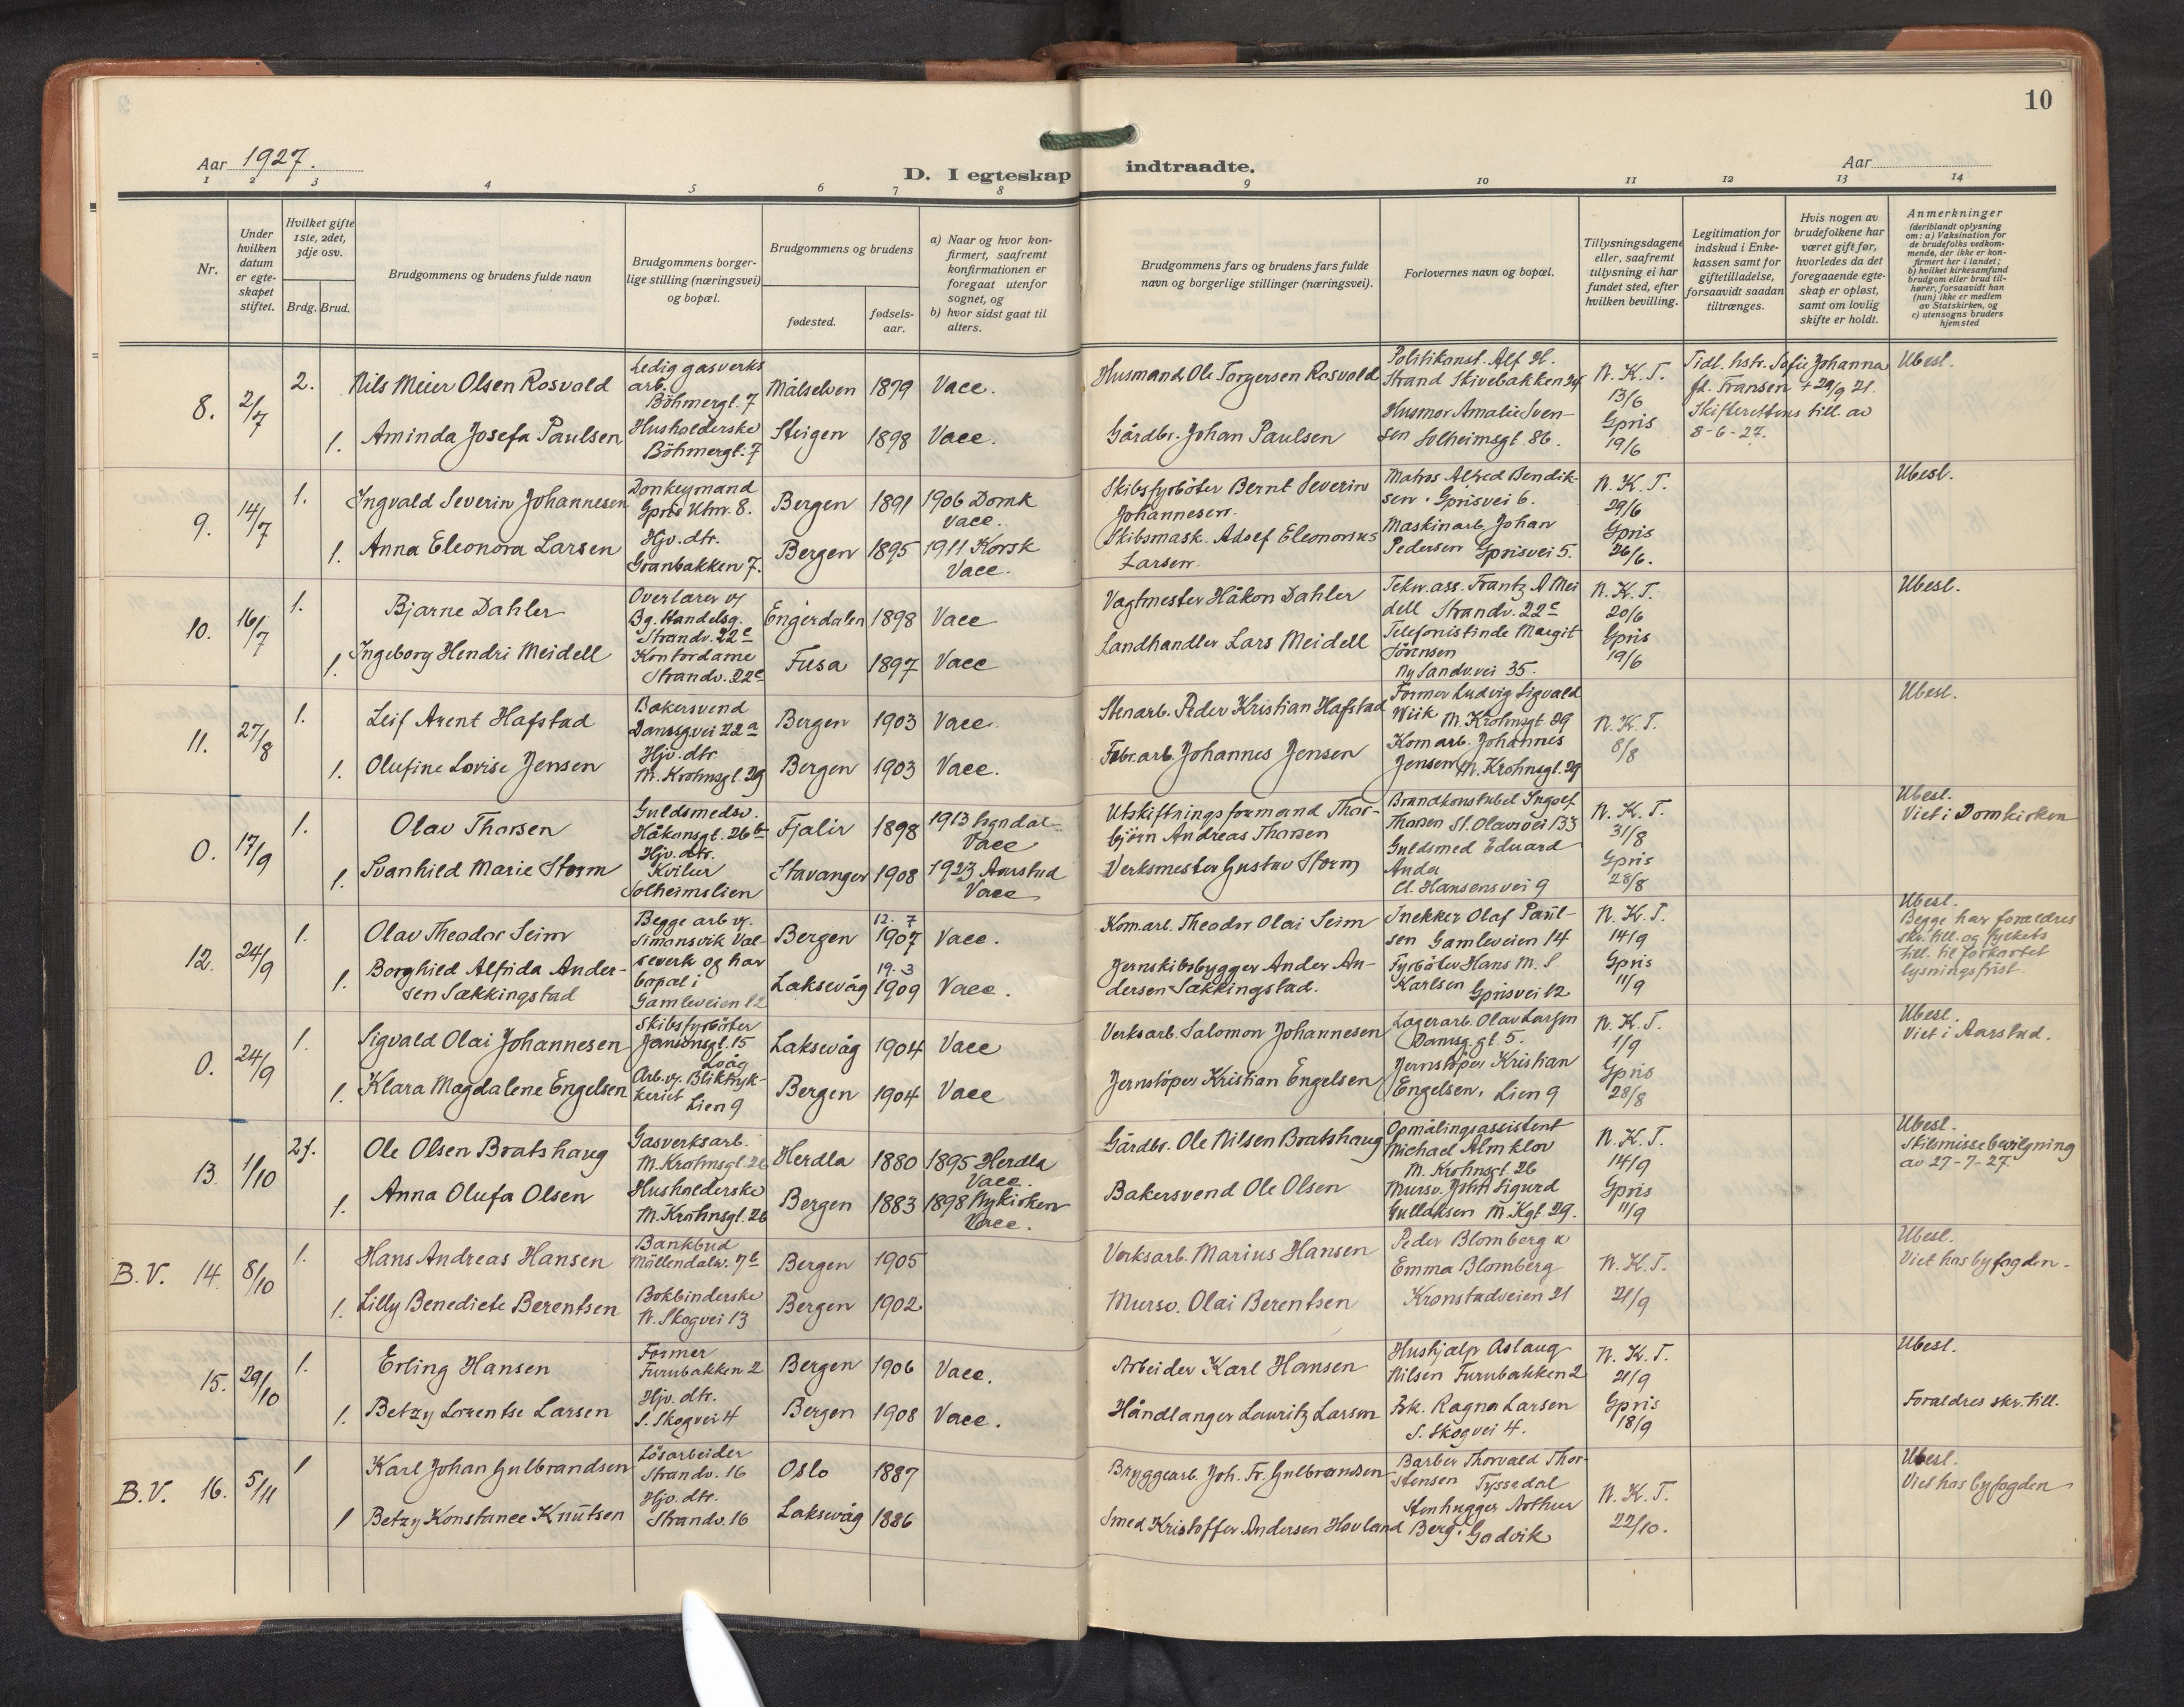 10
Aar 1927.
D. I egteskap indtraadte.
Aar
1 2 3 4 5 6 7 8 9 10 11 12 13 14
Nr.
Under hvilken datum er egteskapet stiftet.
Hvilket gifte 1ste, 2det, 3dje osv.
Brdg. Brud.
Brudgommens og brudens fulde navn
Brudgommens borgerlige stilling (næringsvei) og bopæl.
Brudgommens og brudens
fødested.
fødselsaar.
a) Naar og hvor konfirmert, saafremt konfirmationen er foregaat utenfor sognet, og
b) hvor sidst gaat til alters.
Brudgommens fars og brudens fars fulde navn og borgerlige stillinger (næringsvei).
Forlovernes navn og bopæl.
Tillysningsdagene eller, saafremt tillysning ei har fundet sted, efter hvilken bevilling.
Legitimation for indskud i Enkekassen samt for giftetilladelse, forsaavidt saadan tiltrænges.
Hvis nogen av brudefolkene har været gift før, hvorledes da det foregaaende egteskap er opløst, samt om lovlig skifte er holdt.
Anmerkninger (deriblandt oplysning om: a) Vaksination for de brudefolks vedkommende, der ikke er konfirmert her i landet; b) hvilket kirkesamfund brudgom eller brud tilhører, forsaavidt han (hun) ikke er medlem av Statskirken, og c) utensogns bruders hjemsted
8. 2/7 2. Nils Meier Olsen Rosvold Ledig gasverksarb. Böhmergt. 7 Målselven 1879 Vacc. Husmand Ole Torgersen Rosvold Politikonst. Alf H. Strand Stivebakken 24 N. K. T. 13/6 Tidl. hstr. Sofie Johanna fd. Fransen + 29/9 21. Ubesl.
1. Aminda Josefa Paulsen Husholderske Böhmergt. 7 Steigen 1898 Vacc. Gårdbr. Johan Paulsen Husmor Amalie Svensen Solheimsgt. 86. Gpris 19/6 Skifterettens till. av 8-6-27.
9. 14/7 1. Ingvald Severin Johannesen Donkeymand Gpris Utm. 8. Bergen 1891 1906 Domk Vacc. Skibsfyrböter Bernt Severin Johannesen. Matros Alfred Bendiksen. Gprisvei 6. N. K. T. 29/6 Ubesl.
1. Anna Eleonora Larsen Hjv. dtr. Granbakken 7. Bergen 1895 1911 Korsk Vacc. Skibsmask. Adolf Eleonorius Larsen. Maskinarb. Johan Pedersen Gprisvei 5. Gpris 26/6.
10. 16/7 1. Bjarne Dahler Overlærer v/ Bg. Handelsg. Strandv. 22c Engerdalen 1898 Vacc Vagtmester Håkon Dahler Tekn. ass. Frantz A Meidell Strandv. 22c N. K. T. 20/6 Ubesl.
1. Ingeborg Hendri Meidell Kontordame Strandv. 22c Fusa 1897 Vacc Landhandler Lars Meidell Telefonistinde Margit Sörensen Ny Sandv.vei 35. Gpris 19/6
11. 27/8 1. Leif Arent Hafstad Bakersvend Damsgvei 22a Bergen 1903 Vacc. Stenarb. Peder Kristian Hafstad Former Ludvig Sigvald Wiik M. Krohnsgt 29 N. K. T. 8/8 Ubesl.
1. Olufine Lovise Jensen Hjv. dtr. M. Krohnsgt. 29 Bergen 1903 Vacc. Fabr.arb. Johannes Jensen Kom arb. Johannes Jensen M. Krohnsgt. 29
0. 17/9 1. Olav Thorsen Guldsmedsv. Håkonsgt. 26b Fjalir 1898 1913 Vacc Utskiftningsformand Thorbjörn Andreas Thorsen Brandkonstabel Ingolf Thorsen St. Olavsvei 133 N. K. T. 31/8 Ubesl. Viet i Domkirken
1. Svanhild Marie Storm Hjv. dtr. Solheimslien Stavanger 1908 1923 Aarstad Vacc Verksmester Gustav Storm Guldsmed Edvard Anda Cl. Hansensvei 9 Gpris 28/8
12. 24/9 1. Olav Theodor Seim Begge arb v/ Simonsvik Valseverk og har bopæl i Gamleveien 12 Bergen 12. 7 1907 Vacc. Kom.arb. Theodor Olai Seim Snekker Olaf Paulsen Gamleveien 14 N. K. T. 14/9 Ubesl. Begge har forældres skr. till. og fylkets till. til forkortet lysningsfrist.
1. Borghild Alfrida Andersen Sækkingstad Laksevåg 19. 3 1909 Vacc. Jernskibsbygger Ander Andersen Sækkingstad. Fyrböter Hans M. S Karlsen Gprisvei 12 Gpris 11/9
0. 24/9 1. Sigvald Olai Johannesen Skibsfyrböter Jansonsgt. 15 Lvåg Laksevåg 1904 Vacc Verksarb. Salomon Johannesen Lagerarb. Olav Larsen Damsg.gt. 5. N. K. T. 1/9 Ubesl. Viet i Aarstad.
1. Klara Magdalene Engelsen Arb. v/ Bliktrykkeriet Lien 9 Bergen 1904 Vacc Jernstöper Kristian Engelsen Jernstöper Kristian Engelsen, Lien 9 Gpris 28/8
13. 1/10 2f. Ole Olsen Bratshaug Gasverksarb. M. Krohnsgt. 26 Herdla 1880 1895 Herdla Vacc. Gårdbr. Ole Nilsen Bratshaug Opmålingsassistent Michael Almklov M. Krohnsgt. 26 N. K. T. 14/9 Ubesl. Skilsmissebevilgning av 27-7-27.
1. Anna Olufa Olsen Husholderske M. Krohnsgt. 26 Bergen 1883 1898 Nykirken Vacc. Bakersvend Ole Olsen Mursv. John Sigurd Gullaksen M. Kgt. 29. Gpris 11/9
B. V. 14. 8/10 1. Hans Andreas Hansen Bankbud Möllendalsv. 7b Bergen 1905 Verksarb. Marius Hansen Peder Blomberg & Emma Blomberg Kronstadveien 21 N. K. T. 21/9 Ubesl. Viet hos byfogden.
1. Lilly Benedicte Berentsen Bokbinderske N. Skogvei 13 Bergen 1902 Mursv. Olai Berentsen
15. 29/10 1. Erling Hansen Former Furubakken 2 Bergen 1906 Vacc. Arbeider Karl Hansen Hushjælp Aslaug Nilsen Furubakken 2 N. K. T. 21/9 Ubesl.
1. Betzy Lorentse Larsen Hjv. dtr. S. Skogvei 4 Bergen 1908 Vacc. Håndlanger Lauritz Larsen Frk. Ragna Larsen S. Skogvei 4. Gpris 18/9 Foraldres skr. till.
B. V. 16. 5/11 1 Karl Johan Gulbrandsen Lösarbeider Strandv. 16 Oslo 1887 Bryggearb. Joh. Fr. Gulbrandsen Barber Thorvald Thorstensen Tyssedal N. K. T. 22/10. Ubesl. Viet hos byfogden
1 Betzy Konstance Knutsen Hjv. dtr. Strandv. 16 Laksevåg 1886 Smed Kristoffer Andersen Hovland Stenhugger Arthur Berg, Godvik